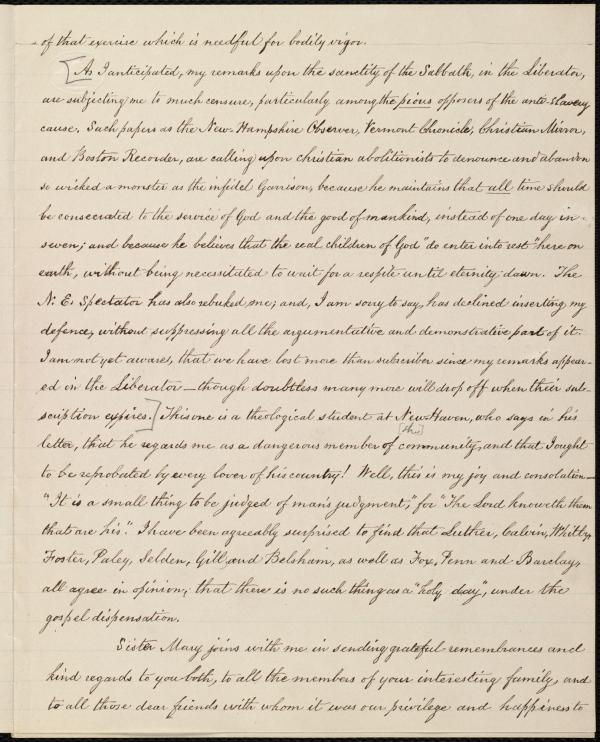 of that exercise which is needful for bodily vigor.
[As I anticipated, my remarks upon the sanctity of the Sabbath, in the Liberator,
are subjecting me to much censure, particularly among the pious opposers of the anti-slavery
cause. Such papers as the New-Hampshire Observer, Vermont Chronicle, Christian Mirror,
and Boston Recorder, are calling upon christian abolitionists to denounce and abandon
so wicked a monster as the infidel Garrison, because he maintains that all time should
be consecrated to the service of God and the good of mankind, instead of one day in
seven; and because he believes that the real children of God "do enter into rest" here on
earth, without being necessitated to wait for a respite until eternity dawn. The
N. E. Spectator has also rebuked me; and, I am sorry to say, has declined inserting my
defence, without suppressing all the argumentative and demonstrative part of it.
I am not yet aware, that we have lost more than subscriber since my remarks appear-
ed in the Liberator—though doubtless many more will drop off when their sub-
scription expires.] This one is a theological student at New-Haven, who says in his
letter, that he regards me as a dangerous member of [the] community, and that I ought
to be reprobated by every lover of his country! Well, this is my joy and consolation—
"It is a small thing to be judged of man's judgment," for "The Lord knoweth them
that are his." I have been agreeably surprised to find that Luther, Calvin, Whitby,
Foster, Paley, Selden, Gill, and Belsham, as well as Fox, Penn and Barclay,
all agree in opinion, that there is no such thing as a "holy day", under the
gospel dispensation.
Sister Mary joins with me in sending grateful remembrances and
kind regards to you both, to all the members of your interesting family, and
to all those dear friends with whom it was our privilege and happiness to